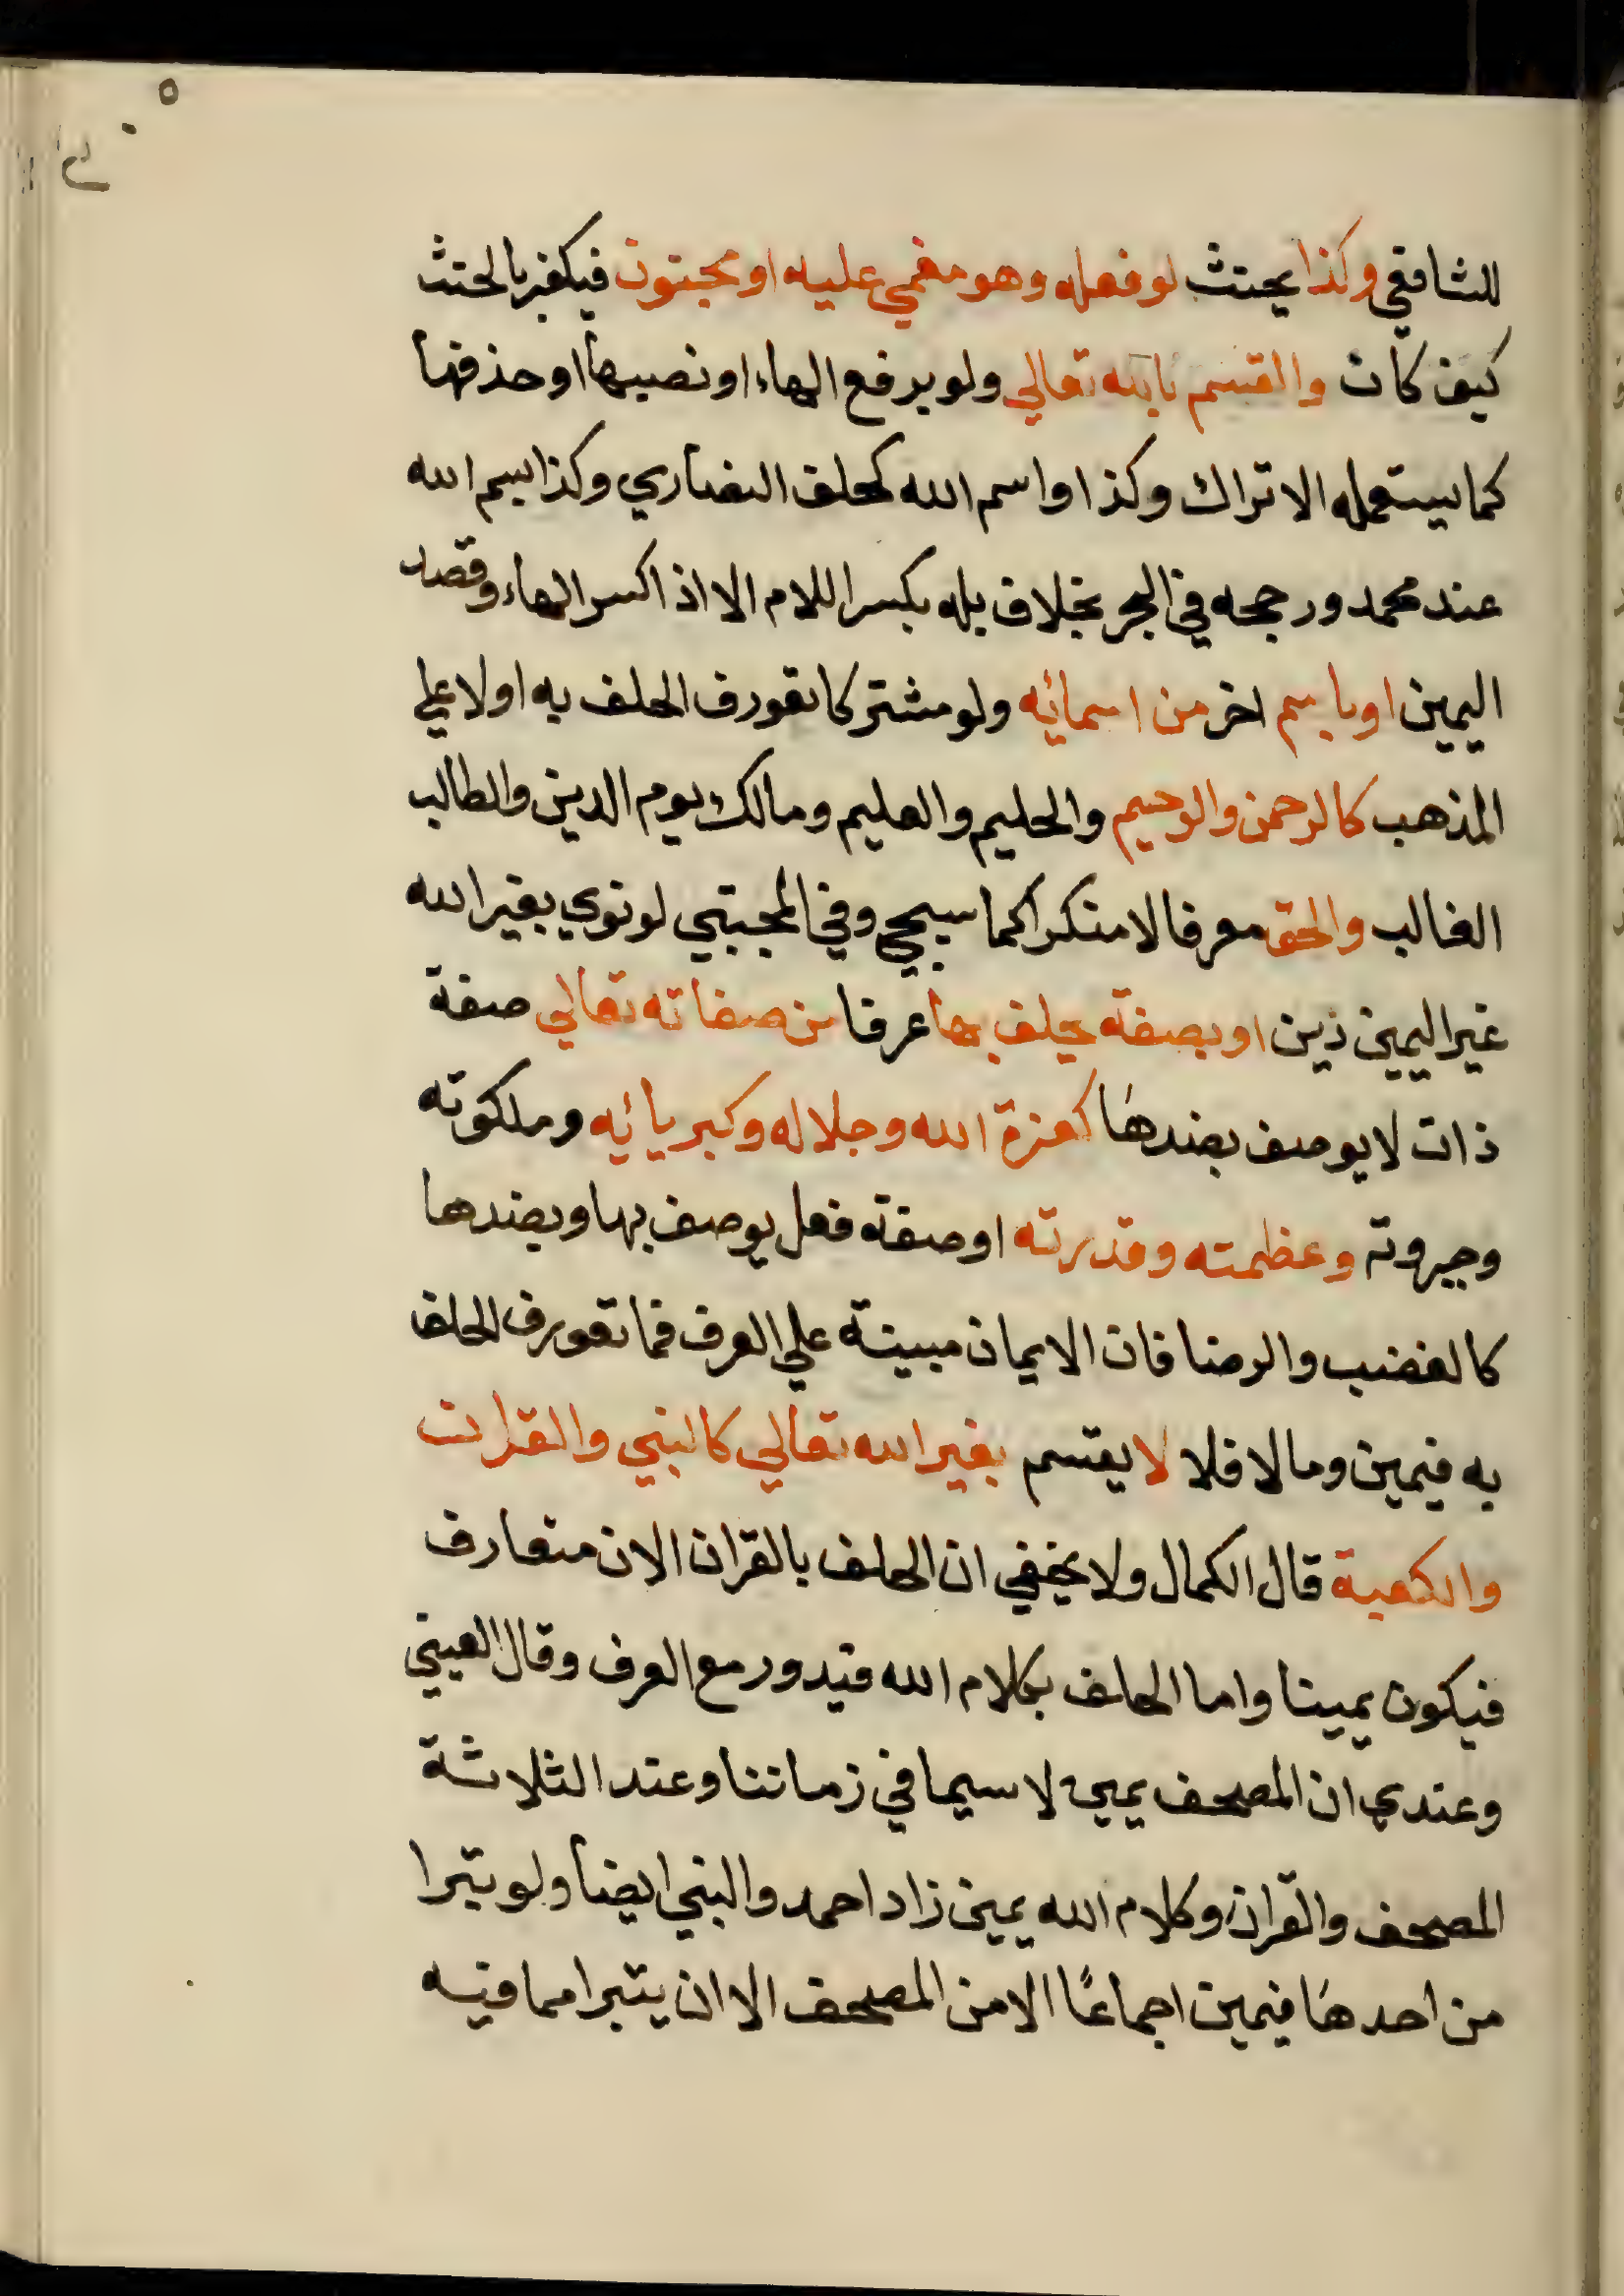 ٥
للشافعي وكذا يحنث لو فعله وهو مغمي عليه او مجنون فيكفر بالحنث
كيف كان والقسم بالله تعالي ولو برفع الهاء او نصبها او حذفها
كما يستعمله الاتراك وكذا واسم الله كحلف النصاري وكذا بسم الله
عند محمد ورجحه في البحر بخلاف بله بكسر اللام الا اذا كسر الهاء وقصد
اليمين او باسم اخر من اسمائه ولو مشتركا تعورف الحلف به او لا علي
المذهب كالرحمن والرحيم والحليم والعليم ومالك يوم الدين والطالب
الغالب والحق معرفا لا منكرا كما سيجي وفي المجتبي لو نوي بغير الله
غير اليمين دين او بصفة يحلف بها عرفا من صفاته تعالي صفة
ذات لا يوصف بضدها كعزة الله وجلاله وكبريائه وملكوته
وجبروته وعظمته وقدرته او صفة فعل يوصف بها وبضدها
كالغضب والرضا فان الايمان مبينة علي العرف فما تعورف الحلف
به فيمين وما لا فلا لا يقسم بغير الله تعالي كالنبي والقران
والكعبة قال الكمال ولا يخفي ان الحلف بالقران الان متعارف
فيكون يمينا واما الحلف بكلام الله فيدور مع العرف وقال العيني
وعندي ان المصحف يمين لا سيما في زماننا وعند الثلاثة
المصحف والقران وكلام الله يمين زاد احمد والنبي ايضا ولو تبرا
من احدها فيمين اجماعًا الا من المصحف الا ان يتبرا مما فيه